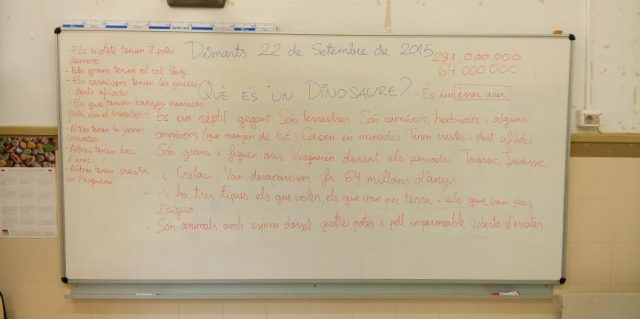 Dimarts 22 de Setembre de 2015
231.000.000
64.000.000
QUÈ ÉS UN DINOSAURE? - És un ésser viu
- És un rèptil gegant. Són terrestres. Són carnívors, herbívors i alguns
omnívors (que mengen de tot). Cacen en manades. Tenen crestes i dents afilades
Són grans i figuen ous. Visqueren durant els períodes Triàssic, Juràssic
i Cretaci. Van desaparèixer fa 64 milions d'anys.
- Hi ha tres tipus: els que volen, els que van per terra i els que van per
l'aigua.
- Són animals amb espina dorsal, quatre potes i pell impermeable coberta d'escates.
- Els
tenen 2 potes
darrere.
- Els grans tenen el coll llarg.
- Els carnívors tenen les
i dents afilades
- Els que tenen banyes
com el triceratops
- Altres tenen
- Altres tenen bec
d'ànec
- Altres tenen cresta